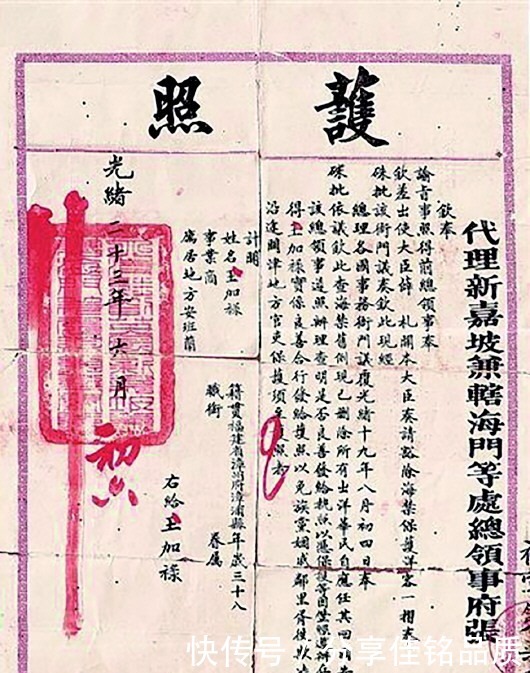 護照
代理新嘉坡兼轄海門等處總領事府張
欽奉
諭旨事照得前總領事奉
欽差出使大臣薛 札開本大臣奏請豁除海禁保護洋客一摺奉
硃批該衙門議奏欽此現經
總理各國事務衙門議覆光緒十九年八月初四日奉
硃批依議欽此查海禁舊例現已刪除所有出洋華民自應任其回
該總領事遵照辦理查明是否良善發給執照以憑保護等因
得王加祿實係良善合行發給護照以免族黨姻戚鄰里胥役
沿途關津地方官吏保護須至護照者
計開
姓名王加祿
事業商
寓居地方安班蘭
籍貫福建省漳州府漳浦縣年歲三十八
職銜
眷屬
右給王加祿
光緒二十三年六月
初六
快传号/分享佳铭品质